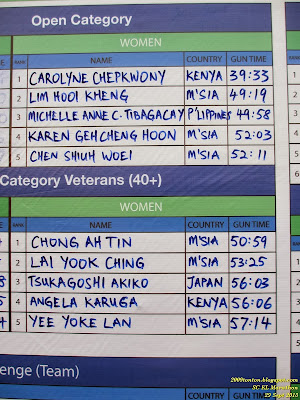 Open Category
WOMEN
RANK NAME COUNTRY GUN TIME
1 CAROLYNE CHEPKWONY KENYA 39:33
2 LIM HOOI KHENG M'SIA 49:19
3 MICHELLE ANNE C. TIBAGACAY P'LIPPINES 49:58
4 KAREN GEH CHENG HOON M'SIA 52:03
5 CHEN SHIUH WOEI M'SIA 52:11
Category Veterans (40+)
WOMEN
RANK NAME COUNTRY GUN TIME
1 CHONG AH TIN M'SIA 50:59
2 LAI YOOK CHING M'SIA 53:25
3 TSUKAGOSHI AKIKO JAPAN 56:03
4 ANGELA KARUGA KENYA 56:06
5 YEE YOKE LAN M'SIA 57:14
enge (Team)
2009tonton.blogspot.com
SC KL Marathon
29 Sept 2013